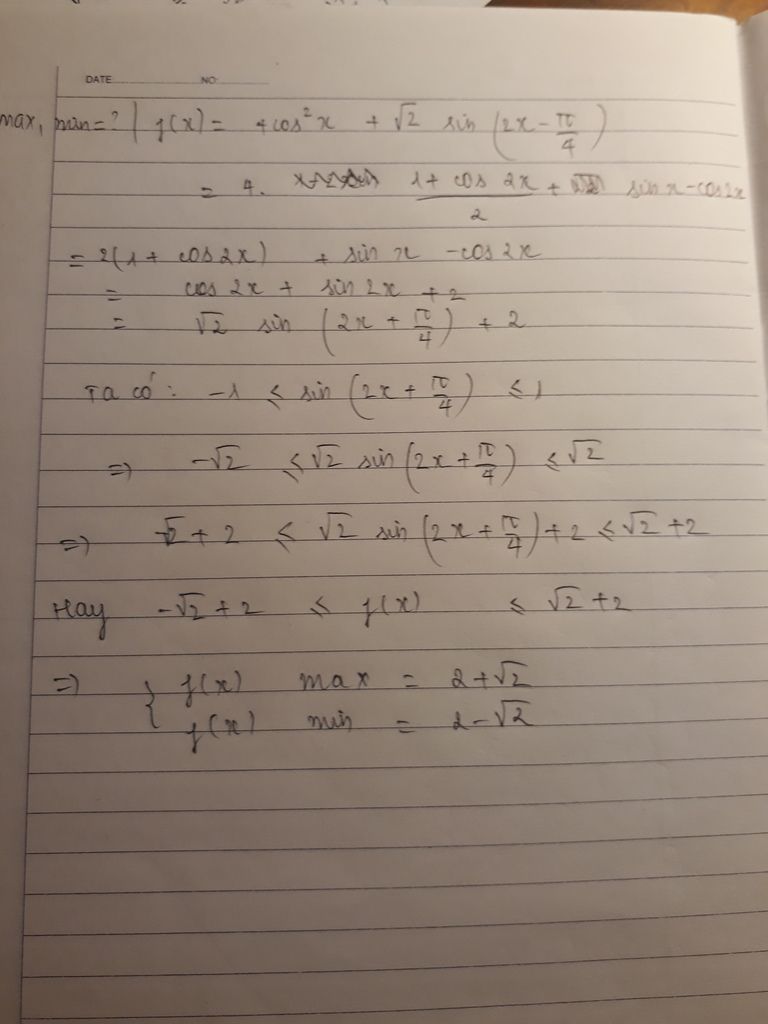 DATE NO
max, min=? | f(x) = 4cos²x + √2 sin (2x - π/4)
= 4. (1 + cos 2x)/2 + sin x - cos2x
= 2(1 + cos2x) + sin x - cos 2x
= cos 2x + sin 2x + 2
= √2 sin (2x + π/4) + 2
Ta có: -1 ≤ sin (2x + π/4) ≤ 1
=) -√2 ≤ √2 sin (2x + π/4) ≤ √2
=) -√2 + 2 ≤ √2 sin (2x + π/4) + 2 ≤ √2 + 2
Hay -√2 + 2 ≤ f(x) ≤ √2 + 2
=) { f(x) max = 2 + √2
f(x) min = 2 - √2